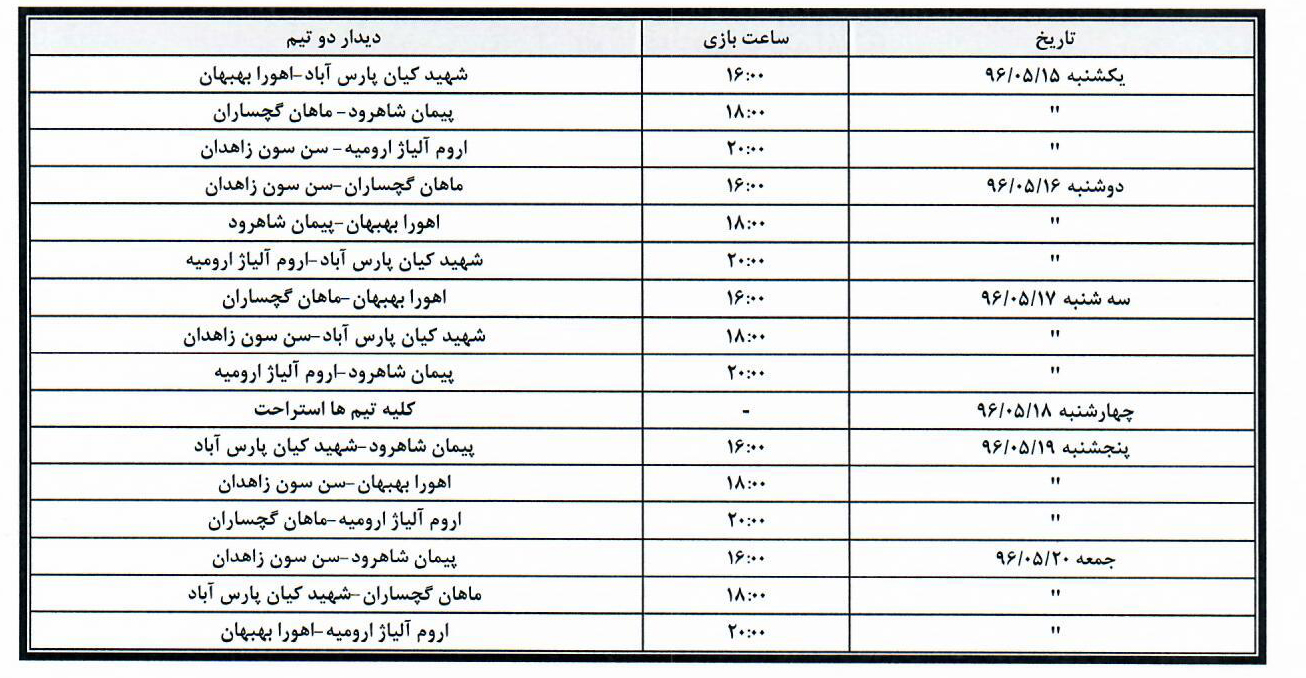 تاریخ ساعت بازی دیدار دو تیم
یکشنبه ۹۶/۰۵/۱۵ ۱۶:۰۰ شهید کیان پارس آباد-اهورا بهبهان
" ۱۸:۰۰ پیمان شاهرود- ماهان گچساران
" ۲۰:۰۰ اروم آلیاژ ارومیه- سن سون زاهدان
دوشنبه ۹۶/۰۵/۱۶ ۱۶:۰۰ ماهان گچساران-سن سون زاهدان
" ۱۸:۰۰ اهورا بهبهان-پیمان شاهرود
" ۲۰:۰۰ شهید کیان پارس آباد-اروم آلیاژ ارومیه
سه شنبه ۹۶/۰۵/۱۷ ۱۶:۰۰ اهورا بهبهان-ماهان گچساران
" ۱۸:۰۰ شهید کیان پارس آباد-سن سون زاهدان
" ۲۰:۰۰ پیمان شاهرود-اروم آلیاژ ارومیه
چهارشنبه ۹۶/۰۵/۱۸ - کلیه تیم ها استراحت
پنجشنبه ۹۶/۰۵/۱۹ ۱۶:۰۰ پیمان شاهرود-شهید کیان پارس آباد
" ۱۸:۰۰ اهورا بهبهان-سن سون زاهدان
" ۲۰:۰۰ اروم آلیاژ ارومیه-ماهان گچساران
جمعه ۹۶/۰۵/۲۰ ۱۶:۰۰ پیمان شاهرود-سن سون زاهدان
" ۱۸:۰۰ ماهان گچساران-شهید کیان پارس آباد
" ۲۰:۰۰ اروم آلیاژ ارومیه-اهورا بهبهان